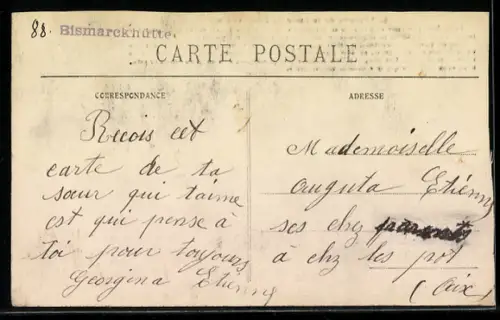 88. Bismarckhütte
CARTE POSTALE
CORRESPONDANCE
Recois cet
carte de ta
sœur qui taime
est qui pense à
toi pour toujours
Georgina Etienne
ADRESSE
Mademoiselle
auguta Etienne
ses chez parents
à chez les pot
(Aix)